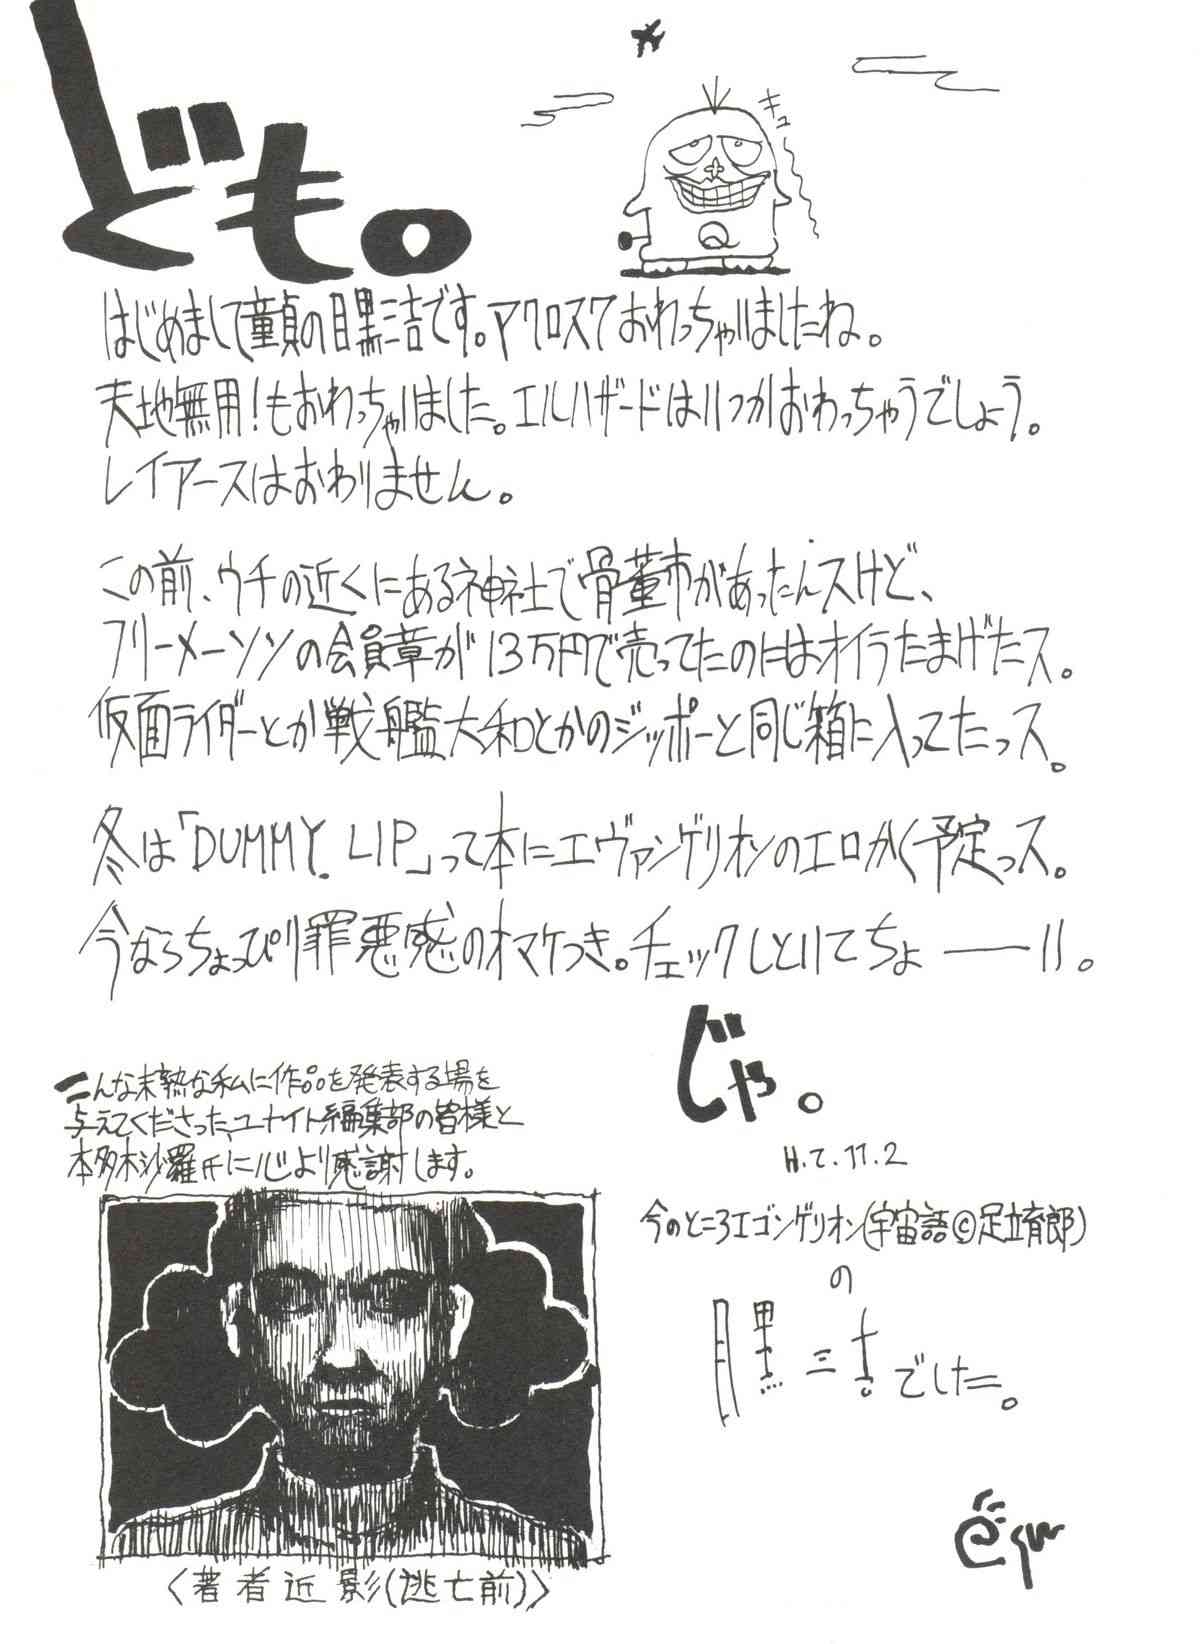 ども。
キュー
はじめまして童貞の目黒三吉です。マクロス7おわっちゃいましたね。
天地無用!もおわっちゃいました。エルハザードはいつかおわっちゃうでしょう。
レイアースはおわりません。
この前、ウチの近くにある神社で骨董市があったんスけど、
フリーメーソンの会員章が13万円で売ってたのにはオイラたまげたス。
仮面ライダーとか戦艦大和とかのジッポーと同じ箱に入ってたっス。
冬は「DUMMY LIP」って本にエヴァンゲリオンのエロかく予定っス。
今ならちょっぴり罪悪感のオマケつき。チェックしといてちょーーい。
じゃ。
H.7.11.2
こんな未熟な私に作品を発表する場を
与えてくださった、ユナイト編集部の皆様と
本多木沙羅氏に心より感謝します。
今のところエゴンゲリオン(宇宙語©足立育郎)
の
目黒三吉でした。
〈著者近影(逃亡前)〉